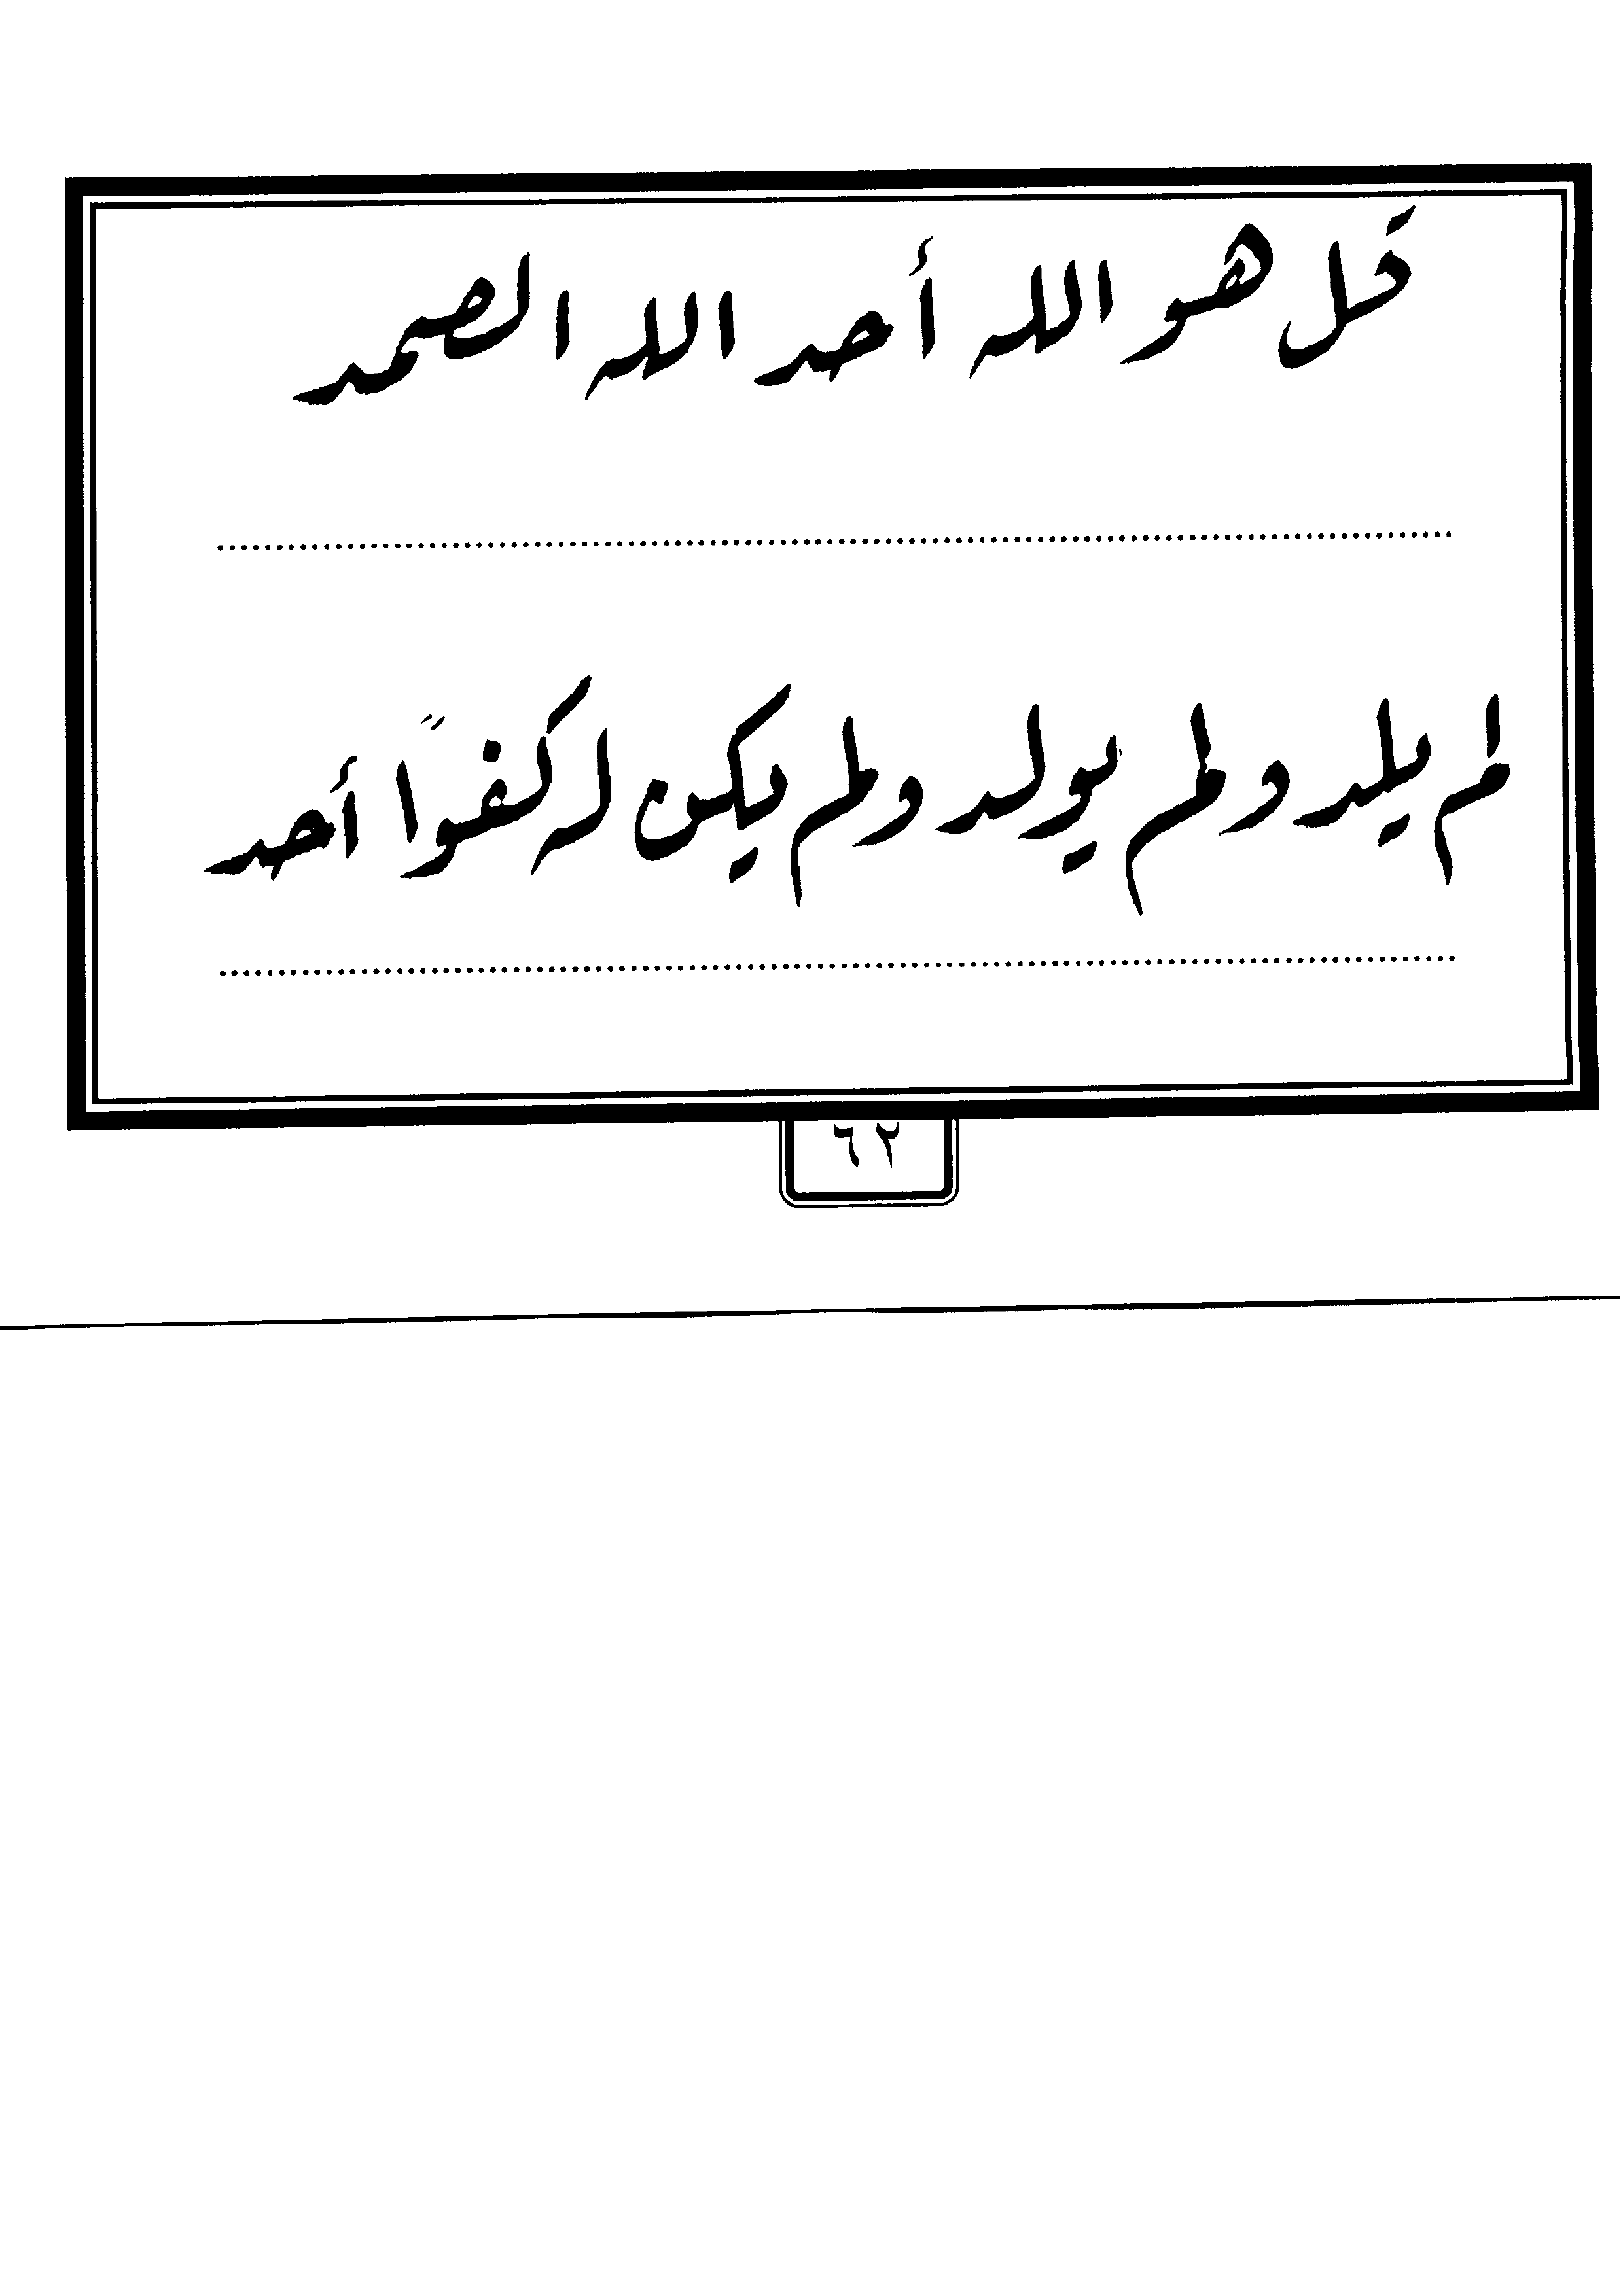 قل هو الله أحد الله الصمد
لم يلد ولم يولد ولم يكن له كفوًا أحد
٦٢